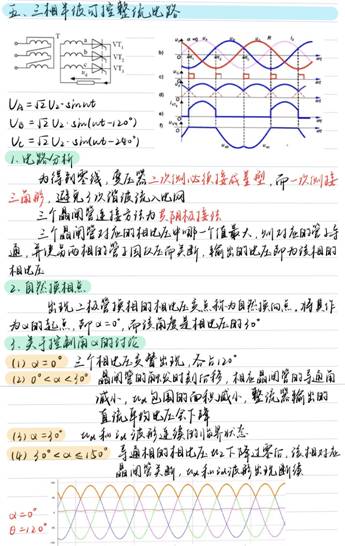 五、三相半波可控整流电路
T
VT₁
VT₂
VT₃
U_A=√2U₂·sinωt
U_B=√2U₂·sin(ωt-120°)
U_C=√2U₂·sin(ωt-240°)
1.电路分析
为得到零线,变压器二次侧必须接成星型,而一次侧接
三角形,避免3次谐波流入电网
三个晶闸管连接方法为共阴极接法
三个晶闸管对应的相电压中哪一个值最大,则对应的管子导
通,并使另两相的管子因反压而关断,输出的电压即为该相的
相电压
2.自然换相点
出现二极管换相的相电压交点称为自然换向点,将其作
为α的起点,即α=0°,而该角度是相电压的30°
3.关于控制角α的讨论
(1) α=0° 三个相电压交替出现,各占120°
(2) 0°<α<30° 晶闸管的触发时刻后移,相应晶闸管的导通角
减小,u_d包围的面积减小,整流器输出的
直流平均电压下降
(3) α=30° u_d和i_d波形连续的临界状态
(4) 30°<α≤150° 导通相的相电压u₂下降过零后,该相对应
晶闸管关断,u_d和i_d波形出现断续
α=0°
θ=120°